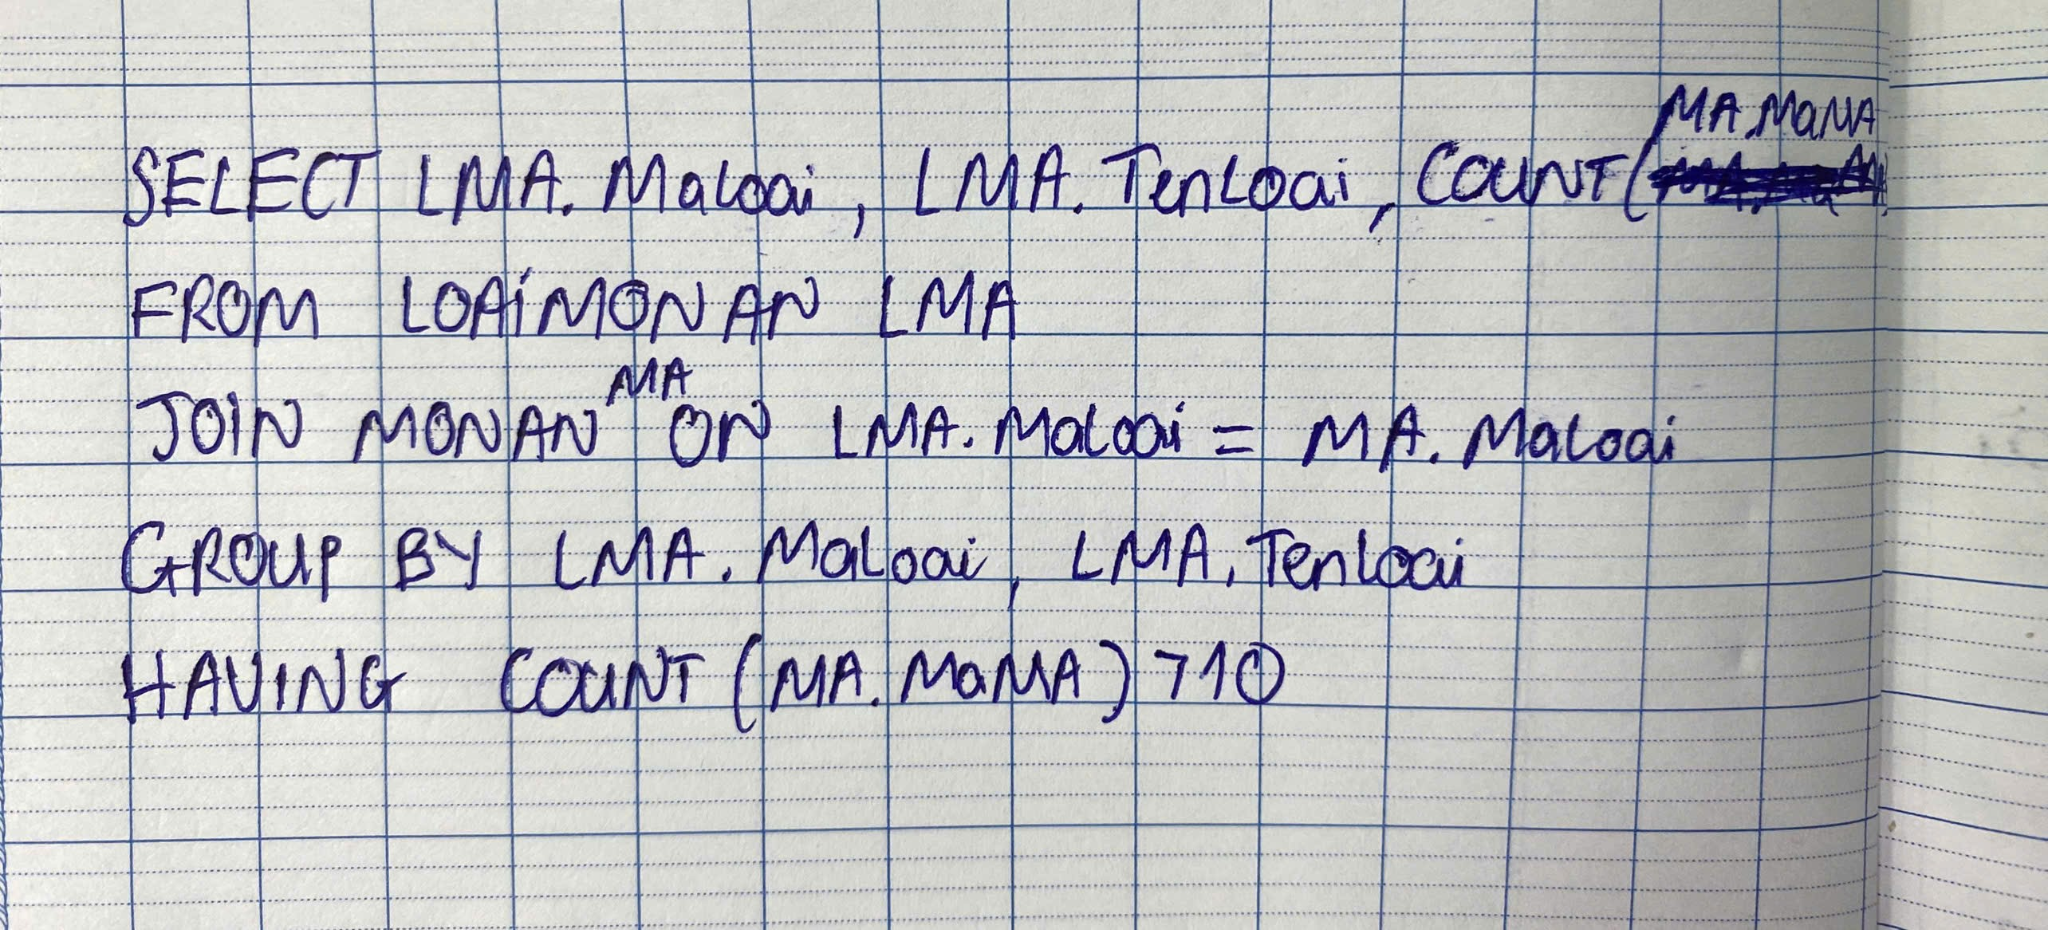 SELECT LMA.MaLoai, LMA.TenLoai, COUNT(MA.MaMA
FROM LOAIMONAN LMA
JOIN MONAN MA ON LMA.MaLoai = MA.MaLoai
GROUP BY LMA.MaLoai, LMA.TenLoai
HAVING COUNT (MA.MaMA) >10